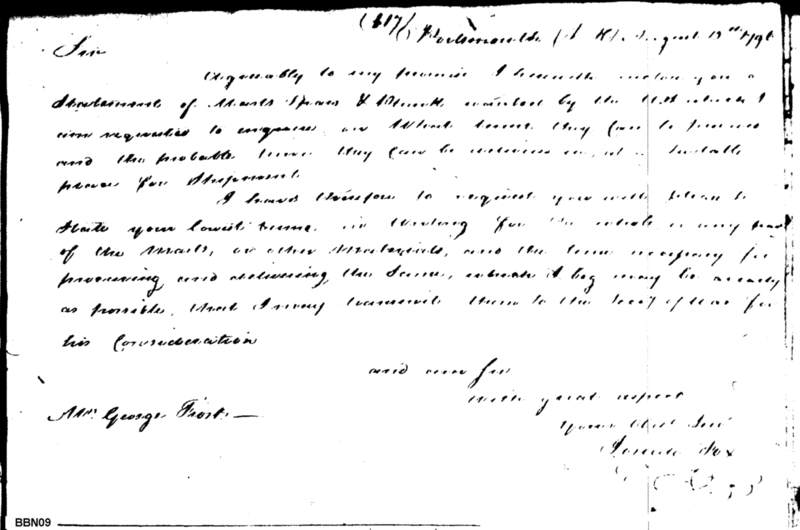 (317) Portsmouth (N H) August 13th 179
Sir
Agreeably to my promise I herewith inclose you a
Statement of Masts Spars & Plank wanted by the U.S which I
am requested to enquire on What terms they can be procured
and the probable time they can be delivered in, at a Suitable
place for Shipment
I have therefore to request you will please to
State your lowest terms in writing for the whole or any part
of the Masts, or other Materials, and the time necessary for
procuring and delivering the Same, which I beg may be as early
as possible, that I may transmit them to the Secy of War for
his Consideration
and am Sir
with great respect
Your Obed Serv
Mr. George Frost
BBN09